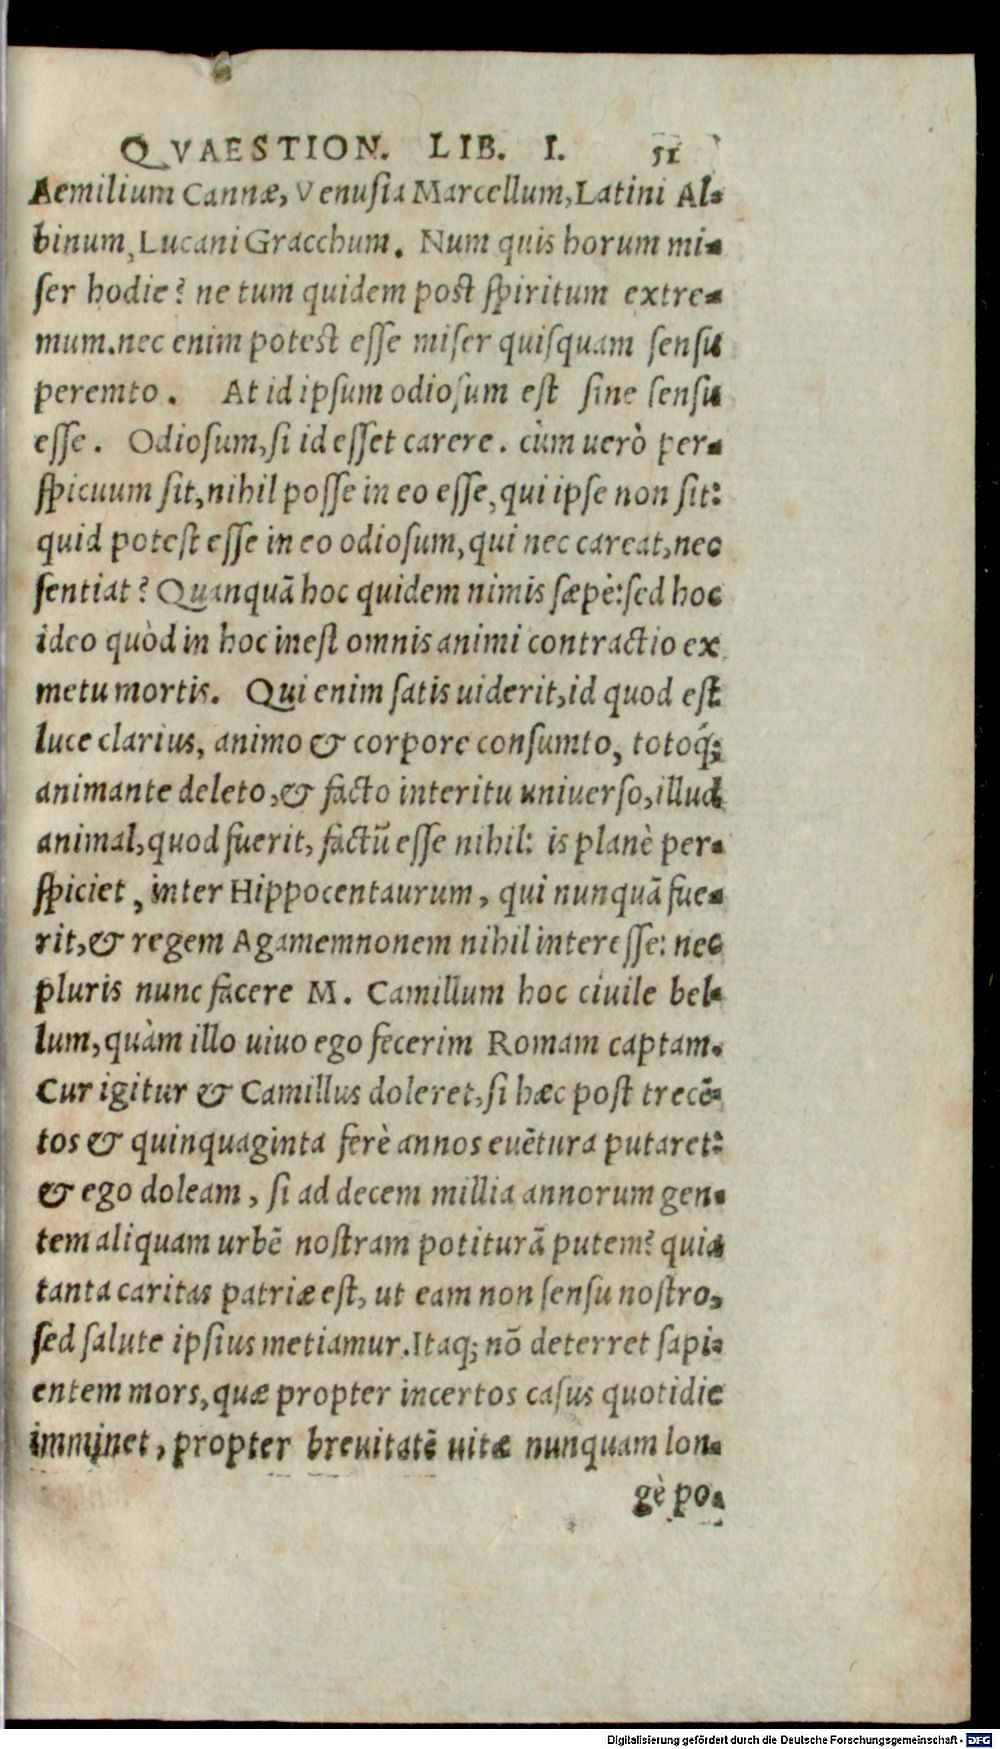 QVAESTION. LIB. I. 51
Aemilium Cannæ, Venusia Marcellum, Latini Al-
binum, Lucani Gracchum. Num quis horum mi-
ser hodie? ne tum quidem post spiritum extre-
mum. nec enim potest esse miser quisquam sensu
peremto. At id ipsum odiosum est sine sensu
esse. Odiosum, si id esset carere. cùm uerò per-
spicuum sit, nihil posse in eo esse, qui ipse non sit:
quid potest esse in eo odiosum, qui nec careat, nec
sentiat? Quanquā hoc quidem nimis sæpè: sed hoc
ideo quòd in hoc inest omnis animi contractio ex
metu mortis. Qui enim satis uiderit, id quod est
luce clarius, animo & corpore consumto, totoq́;
animante deleto, & facto interitu uniuerso, illud
animal, quod fuerit, factū esse nihil: is planè per-
spiciet, inter Hippocentaurum, qui nunquā fue-
rit, & regem Agamemnonem nihil interesse: nec
pluris nunc facere M. Camillum hoc ciuile bel-
lum, quàm illo uiuo ego fecerim Romam captam.
Cur igitur & Camillus doleret, si hæc post trecē-
tos & quinquaginta ferè annos euētura putaret:
& ego doleam, si ad decem millia annorum gen-
tem aliquam urbē nostram potiturā putem? quia
tanta caritas patriæ est, ut eam non sensu nostro,
sed salute ipsius metiamur. Itaq; nō deterret sapi-
entem mors, quæ propter incertos casus quotidie
imminet, propter breuitatē uitæ nunquam lon-
gè po-
Digitalisierung gefördert durch die Deutsche Forschungsgemeinschaft - DFG